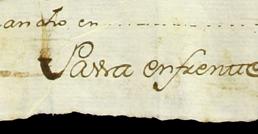 ancho en
Parra enfrente